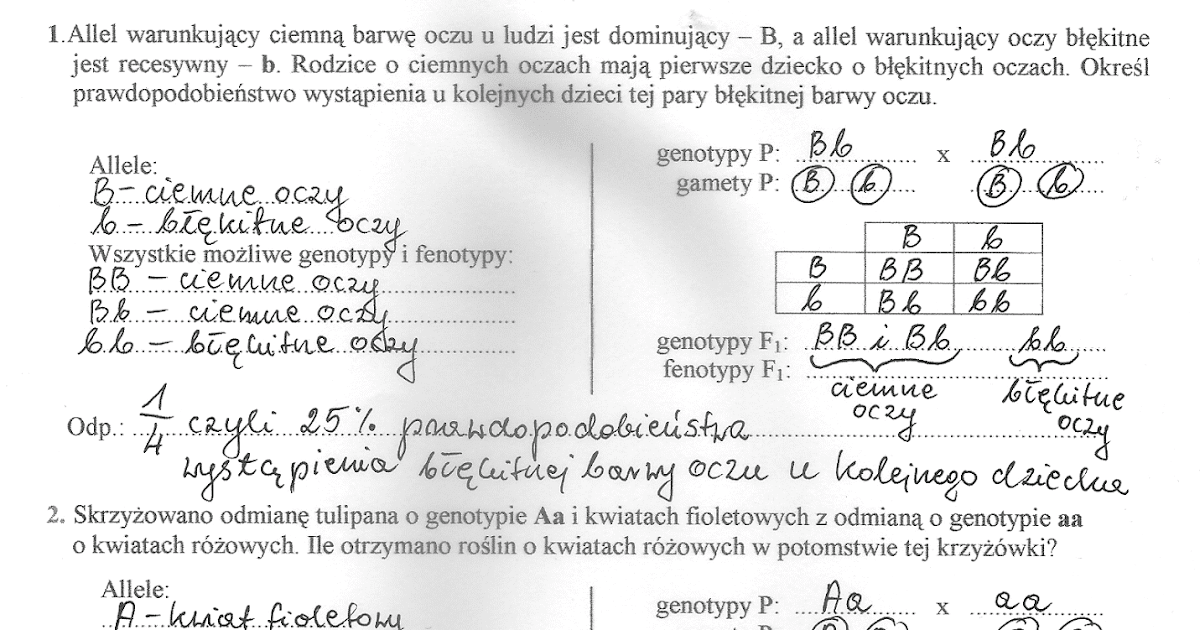 1.Allel warunkujący ciemną barwę oczu u ludzi jest dominujący – B, a allel warunkujący oczy błękitne
jest recesywny – b. Rodzice o ciemnych oczach mają pierwsze dziecko o błękitnych oczach. Określ
prawdopodobieństwo wystąpienia u kolejnych dzieci tej pary błękitnej barwy oczu.
Allele:
B – ciemne oczy
b – błękitne oczy
Wszystkie możliwe genotypy i fenotypy:
BB – ciemne oczy
Bb – ciemne oczy
bb – błękitne oczy
genotypy P: Bb x Bb
gamety P: B b B b
B b
B BB Bb
b Bb bb
genotypy F1: BB i Bb, bb
fenotypy F1:
ciemne oczy
błękitne oczy
Odp.: 1/4 czyli 25% prawdopodobieństwa
wystąpienia błękitnej barwy oczu u kolejnego dziecka
2. Skrzyżowano odmianę tulipana o genotypie Aa i kwiatach fioletowych z odmianą o genotypie aa
o kwiatach różowych. Ile otrzymano roślin o kwiatach różowych w potomstwie tej krzyżówki?
Allele:
A – kwiat fioletowy
genotypy P: Aa x aa